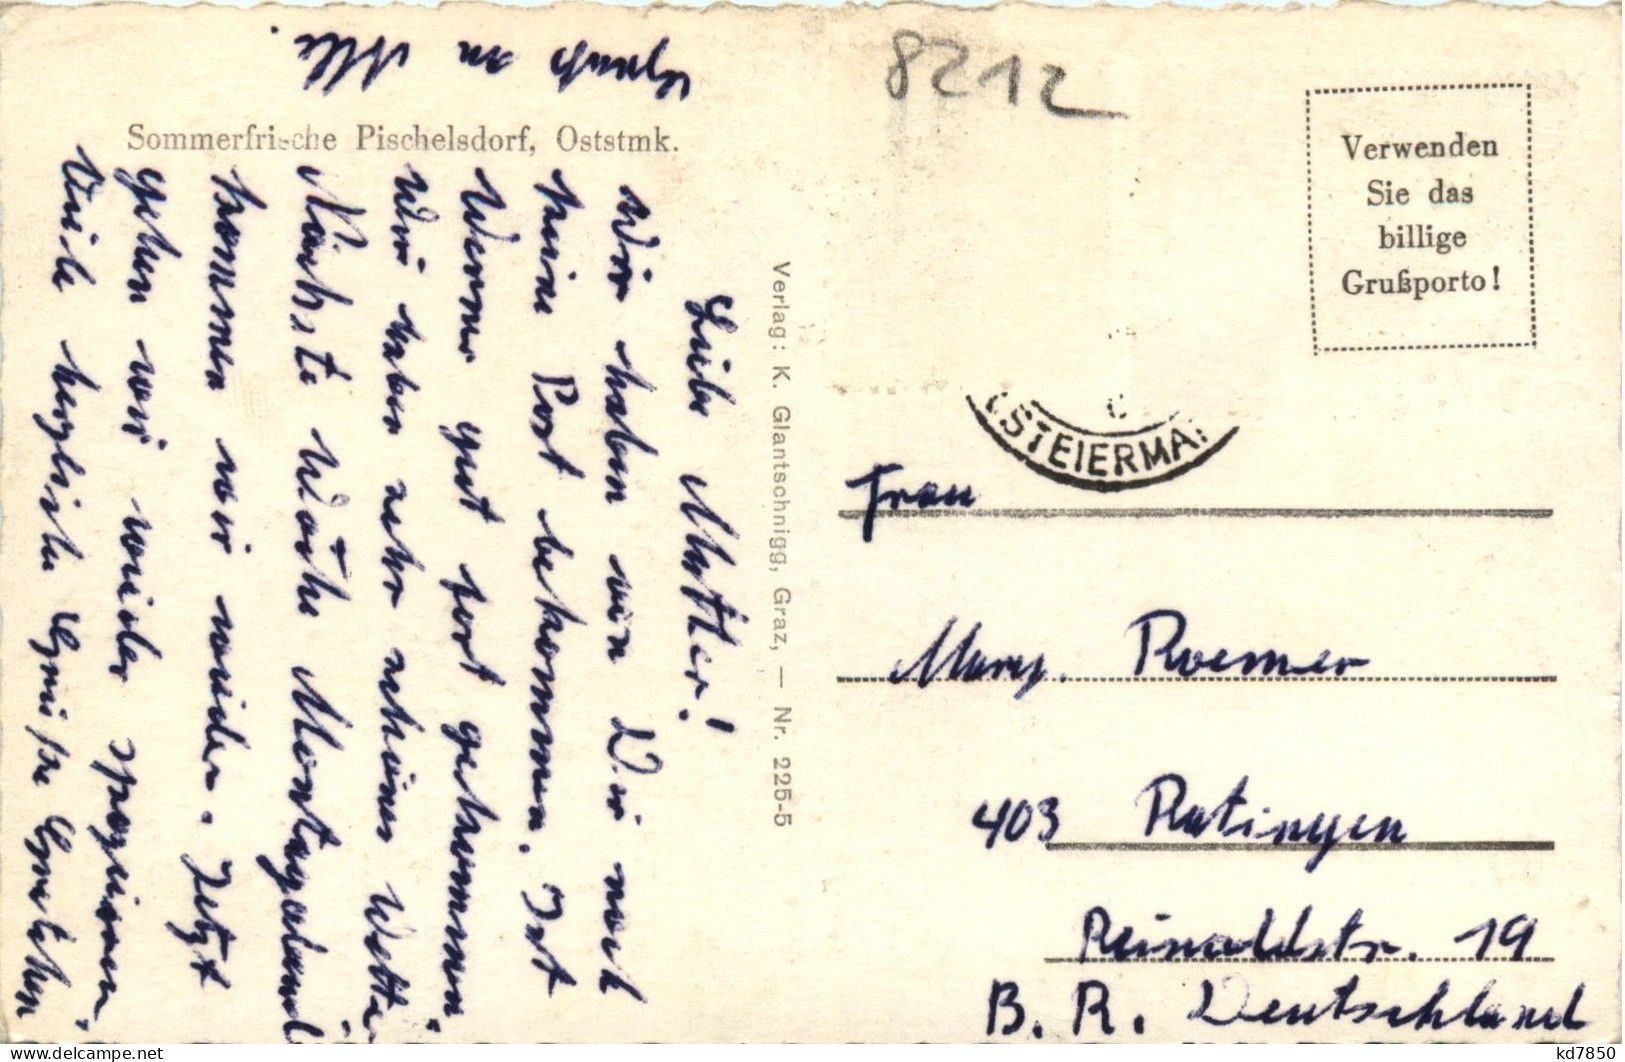 8212
Gruß an Alle.
Sommerfrische Pischelsdorf, Oststmk.
Liebe Mutter!
Wir haben von Dir noch
keine Post bekommen. Ist
Werner gut fort gekommen.
Wir haben sehr schönes Wetter
Nächste Woche Montagabend
kommen wir wieder. Jetzt
gehen wir wieder spazieren.
Viele herzliche Grüße Gretchen
Verlag: K. Glantschnigg, Graz, — Nr. 225-5
Verwenden
Sie das
billige
Grußporto!
STEIERMA
Frau
Marg. Roemer
403 Ratingen
Reinaldstr. 19
B. R. Deutschland
kd7850